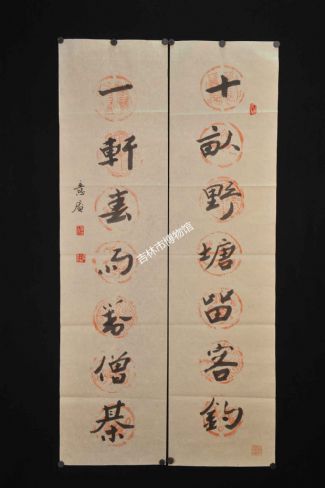 十畝野塘留客釣
一軒春雨對僧棋
吉林市博物馆